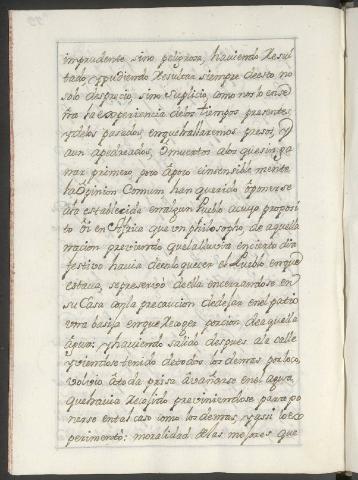 imprudente sino peligrosa, haviendo Resul
tado, y pudiendo Resultar siempre de esto no
solo desprecio, sino Suplicio, como nos lo ense
tra la experiencia de los tiempos presentes
y de los pasados, en que hallaremos presos, y
aun apedreados, ò muertos a los que sin ga
nar primero, poco à poco è insensiblemente
la Opinion Comun han querido oponerse
à la establecida en algun Pueblo a cuyo proposi
to oi en Africa que un philosopho, de aquella
nacion previendo que la lluvia en cierto dia
festivo havia de enloquecer el Pueblo en que
estava, se preservò de ella encerrandose en
su Casa con la precaucion de dejar en el patio
una basija en que Recoger porcion de aquella
àgua: y haviendo salido despues a la calle
y viendose tenido de todos los demas por loco,
volviò à toda prisa à vanarse en el agua,
que havia Recojido previniendose para po
nerse en tal caso como los demas, y assi lo ex
perimentò: moralidad de las mejores que